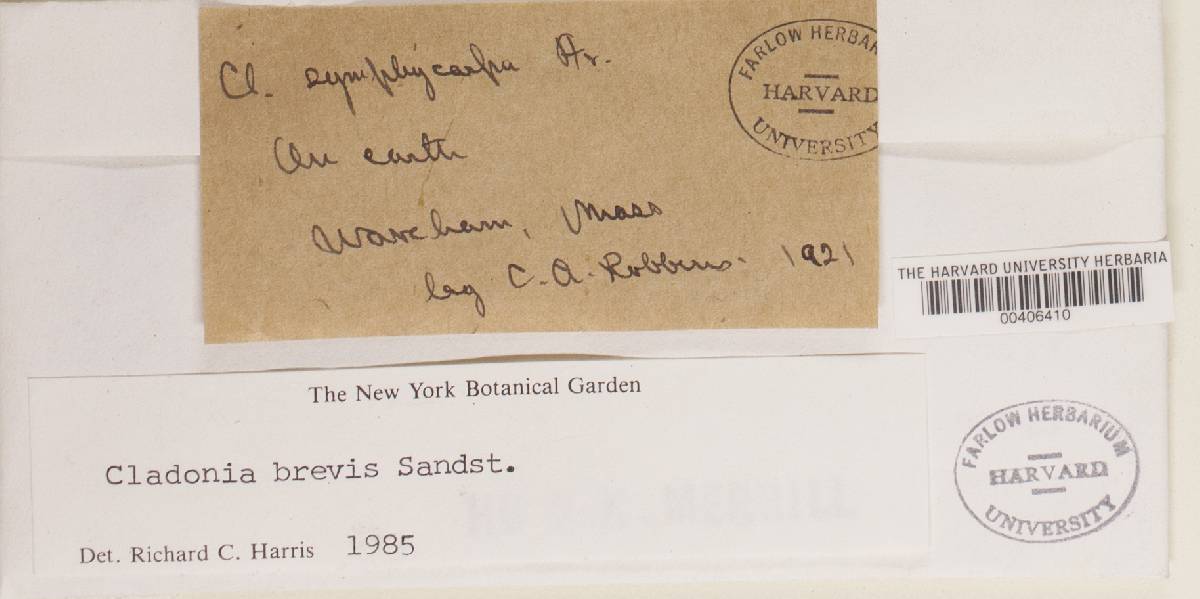 Cl. symphycarpa Fr.
On earth
Wareham, Mass
leg C. A. Robbins. 1921
FARLOW HERBAR
HARVARD
UNIVERSITY
THE HARVARD UNIVERSITY HERBARIA
00406410
The New York Botanical Garden
Cladonia brevis Sandst.
Det. Richard C. Harris 1985
FARLOW HERBARIUM
HARVARD
UNIVERSITY